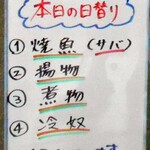 本日の日替り
① 焼魚(サバ)
② 揚物
③ 煮物
④ 冷奴